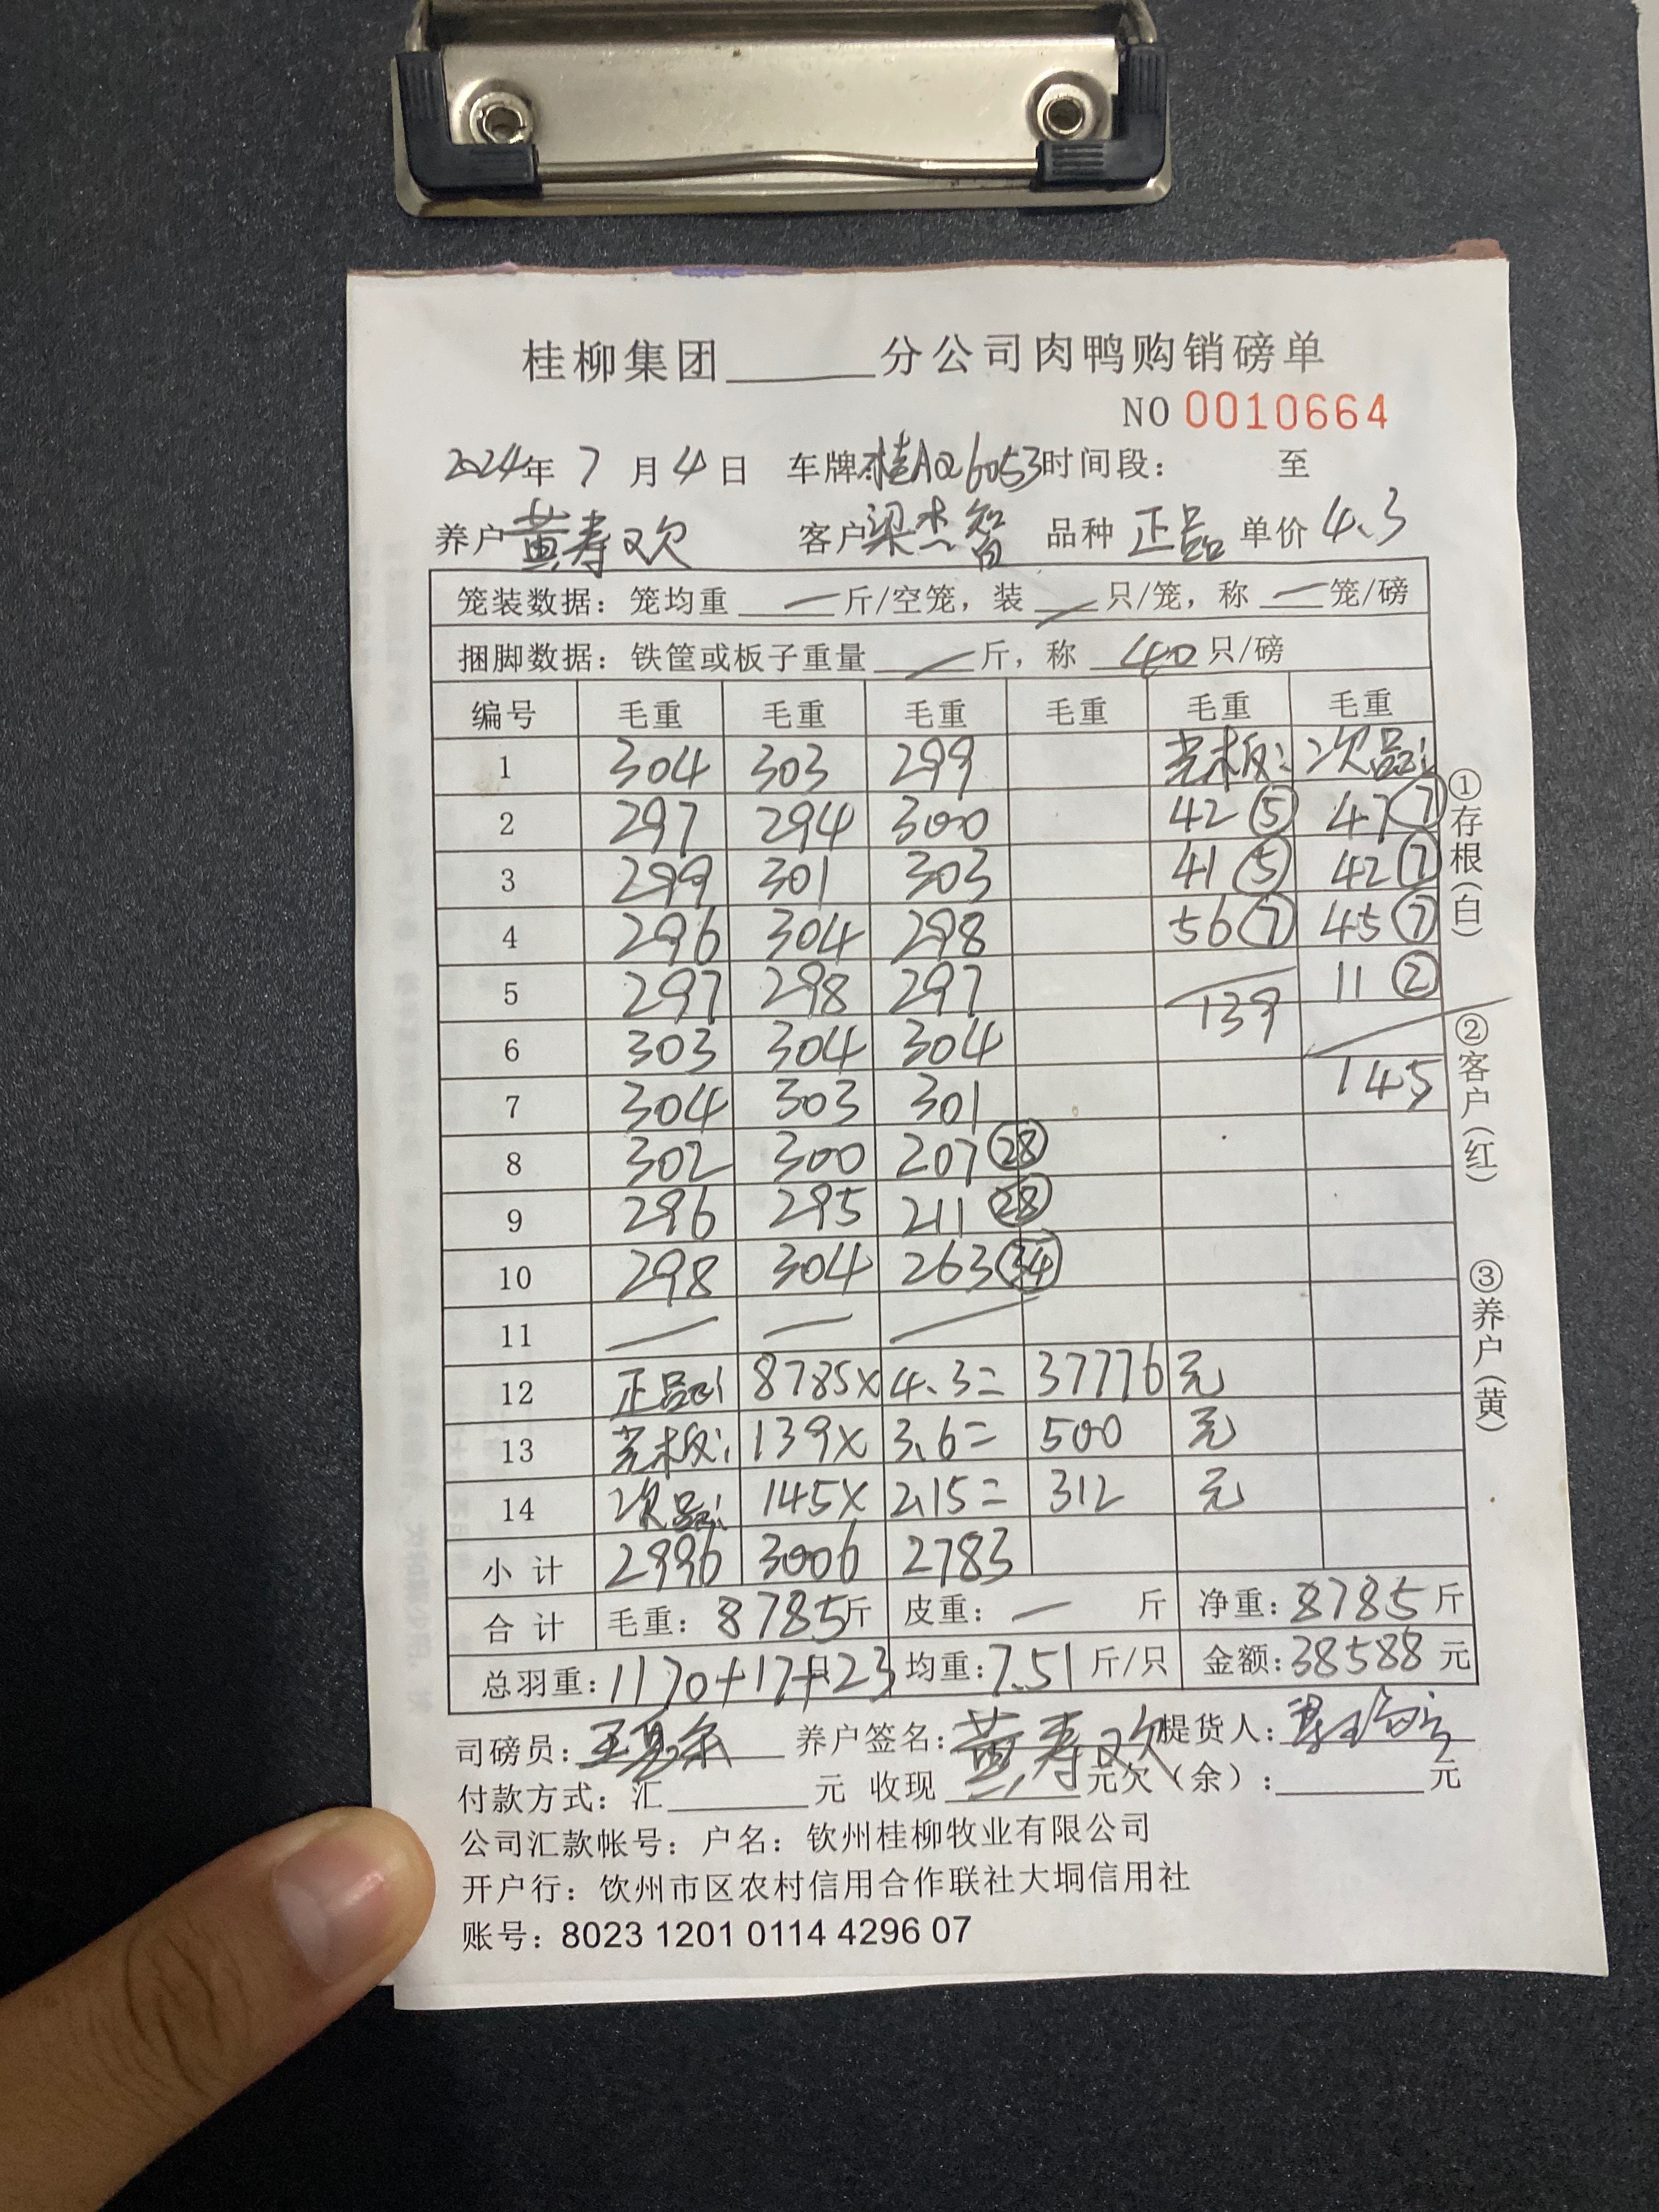 桂柳集团______分公司肉鸭购销磅单
NO 0010664
2024年 7 月 4 日 车牌:桂AQ6053 时间段: 至
养户 黄寿欢 客户 梁杰智 品种 正品 单价 4.3
笼装数据:笼均重 — 斤/空笼,装 — 只/笼,称 — 笼/磅
捆脚数据:铁筐或板子重量 — 斤,称 40 只/磅
编号 毛重 毛重 毛重 毛重 毛重 毛重
1 304 303 299 光板: 次品:
2 297 294 300 42⑤ 47⑦
3 299 301 303 41⑤ 42⑦
4 296 304 298 56⑦ 45⑦
5 297 298 297 139 11②
6 303 304 304
7 304 303 301 145
8 302 300 207㉘
9 296 295 211㉘
10 298 304 263㉞
11 — — —
12 正品: 8785× 4.3= 37776 元
13 光板: 139× 3.6= 500 元
14 次品: 145× 2.15= 312 元
小计 2996 3006 2783
合计 毛重: 8785斤 皮重: — 斤 净重: 8785斤
总羽重: 1170+17+23 均重: 7.51 斤/只 金额: 38588 元
司磅员: 养户签名: 黄寿欢 提货人:
付款方式:汇______元 收现______元欠(余):______元
公司汇款帐号:户名:钦州桂柳牧业有限公司
开户行:钦州市区农村信用合作联社大垌信用社
账号:8023 1201 0114 4296 07
①存根(白)
②客户(红)
③养户(黄)